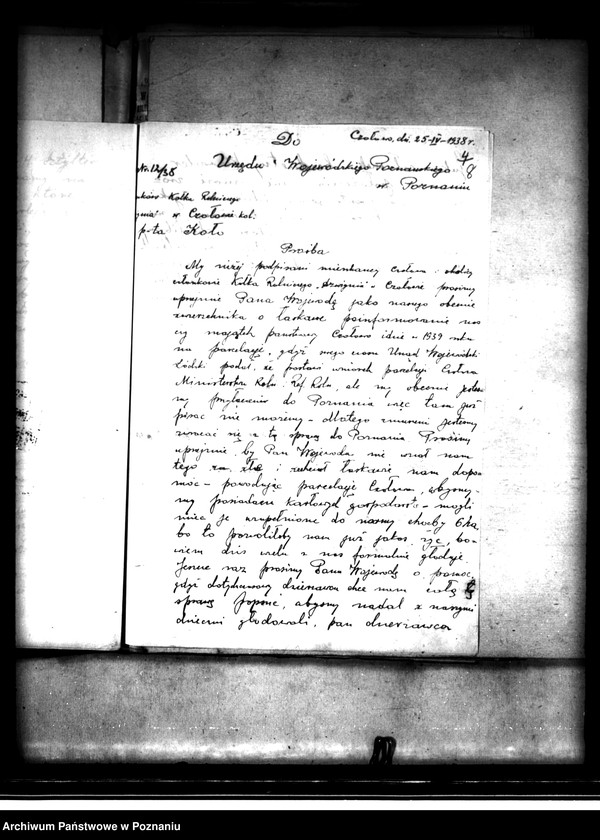 Czołowo, dn. 25-IV-1938 r.
Do
4
8
Urzędu Wojewódzkiego Poznańskiego
w Poznaniu
Nr. 12/38
Kółka Rolniczego
w Czołowie kol.
p-ta Koło
Prośba
My niżej podpisani mieszkańcy Czołowa i okolicy
członkowie Kółka Rolniczego w Czołowie prosimy
uprzejmie Pana Wojewodę jako naszego obecnie
zwierzchnika o łaskawe poinformowanie nas
czy majątek państwowy Czołowo idzie w 1939 roku
na parcelację, gdyż swego czasu Urząd Wojewódzki
Łódzki podał, że postawi wniosek parcelacji Czołowa
Ministerstwu Roln. i Ref. Roln., ale my obecnie jesteś-
my przyłączeni do Poznania więc tam już
pisać nie możemy - dlatego zmuszeni jesteśmy
zwracać się z tą sprawą do Poznania. Prosimy
uprzejmie by Pan Wojewoda nie wziął nam
tego za złe i zechciał łaskawie nam dopo-
móc - powodując parcelację Czołowa, abyśmy -
my posiadacze karłowatych gospodarstw - mogli
mieć je uzupełnione do normy choćby 6 ha,
bo to pozwoliłoby nam już jakoś żyć, bo-
wiem dziś wielu z nas formalnie głoduje.
Jeszcze raz prosimy Pana Wojewodę o pomoc,
gdyż dotychczasowy dzierżawca chce nam całą
sprawę popsuć, abyśmy nadal z naszymi
dziećmi głodowali, pan dzierżawca
Archiwum Państwowe w Poznaniu